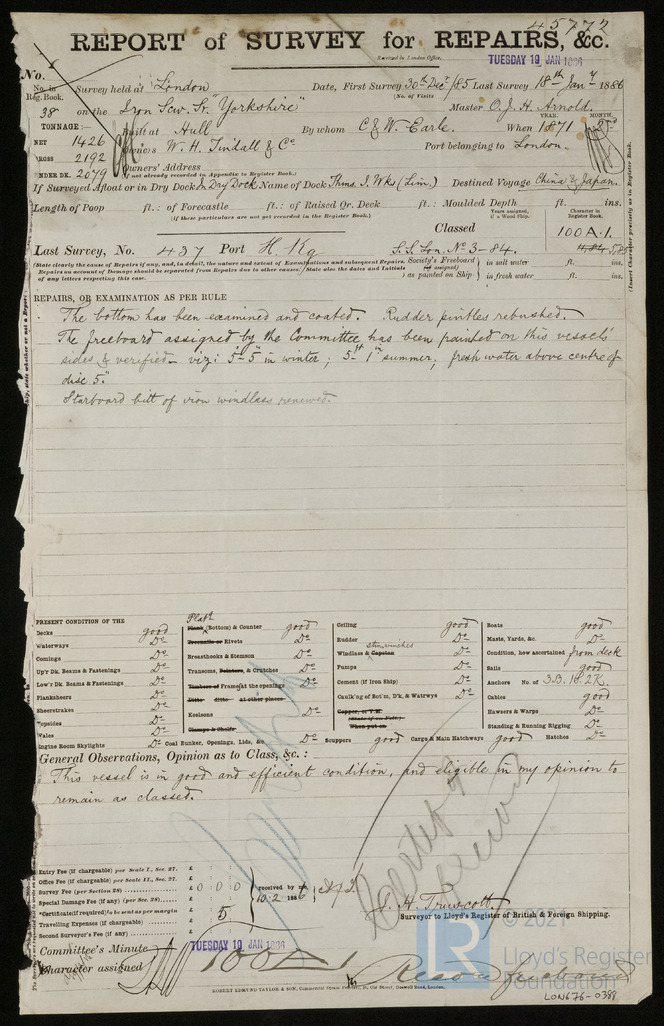 45772
REPORT of SURVEY for REPAIRS, &c.
Received in London Office,
TUESDAY 19 JAN 1886
No.
No. in Reg. Book.
Survey held at London
Date, First Survey 30th Decr /85 Last Survey 18th Jany 1886
(No. of Visits
38 on the Iron Scw. Sr. "Yorkshire" Master O. J. H. Arnold.
TONNAGE:—
YEAR. MONTH.
Built at Hull By whom C & W. Earle. When 1871
NET 1426
Owners W. H. Tindall & Co Port belonging to London.
GROSS 2192
Owners' Address
UNDER DK. 2079 (if not already recorded in Appendix to Register Book.)
If Surveyed Afloat or in Dry Dock In Dry Dock Name of Dock Thms. I. Wks (Lim.) Destined Voyage China & Japan.
Length of Poop ft.: of Forecastle ft.: of Raised Qr. Deck ft.: Moulded Depth ft. ins.
(if these particulars are not yet recorded in the Register Book.)
Years assigned, if a Wood Ship.
Character in Register Book.
Classed 100 A.1.
Last Survey, No. 437 Port H. Kg S.S. Lon. No 3-84.
(State clearly the cause of Repairs if any, and, in detail, the nature and extent of Examinations and subsequent Repairs.
Repairs on account of Damage should be separated from Repairs due to other causes; State also the dates and Initials
of any letters respecting this case.
Society's Freeboard (if assigned) as painted on Ship:
in salt water ft. ins.
in fresh water ft. ins.
(Insert Character precisely as in Register Book.
REPAIRS, OR EXAMINATION AS PER RULE
The bottom has been examined and coated. Rudder pintles rebushed.
The freeboard assigned by the Committee has been painted on this vessel's
sides & verified — viz: 5-5 in winter; 5-1 summer; fresh water above centre of
disc 5".
Starboard bitt of iron windlass renewed.
PRESENT CONDITION OF THE
Decks good
Waterways Do
Comings Do
Up'r Dk. Beams & Fastenings Do
Low'r Dk. Beams & Fastenings Do
Planksheers Do
Sheerstrakes Do
Topsides Do
Wales Do
Engine Room Skylights Do
Plate
Plank (Bottom) & Counter good
Treenails or Rivets Do
Breasthooks & Stemson Do
Transoms, Pointers, & Crutches Do
Timbers of Frame at the openings Do
Ditto ditto at other places
Keelsons Do
Clamps & Shelfs
Coal Bunker, Openings, Lids, &c. Do
Ceiling good
Rudder Do
Windlass & Capstan Do
Pumps Do
Cement (if Iron Ship) Do
Caulk'ng of Bot'm, D'k, & Watrwys Do
Copper, or Y.M.
(State if on Felt)
When put on
Scuppers good Cargo & Main Hatchways good Hatches Do
Boats good
Masts, Yards, &c. Do
Condition, how ascertained from deck
Sails good
Anchors No. of 3.B. 1S. 2K.
Cables good
Hawsers & Warps Do
Standing & Running Rigging Do
General Observations, Opinion as to Class, &c.:
This vessel is in good and efficient condition, and eligible in my opinion to
remain as classed.
Entry Fee (if chargeable) per Scale I., Sec. 27. £
Office Fee (if chargeable) per Scale II., Sec. 27. £
Survey Fee (per Section 28) £ 0 0 0
Special Damage Fee (if any) (per Sec. 28) £
*Certificate (if required) to be sent as per margin 5
Travelling Expenses (if chargeable) £
Second Surveyor's Fee (if any) £
received by me
10.2 1886
S. H. Truscott
Surveyor to Lloyd's Register of British & Foreign Shipping.
Committee's Minute TUESDAY 19 JAN 1886
Character assigned 100 A 1
ROBERT EDMUND TAYLOR & SON, Commercial Steam Printers, 19, Old Street, Goswell Road, London.
© 2021
LR
Lloyd's Register
Foundation
LON676-0388